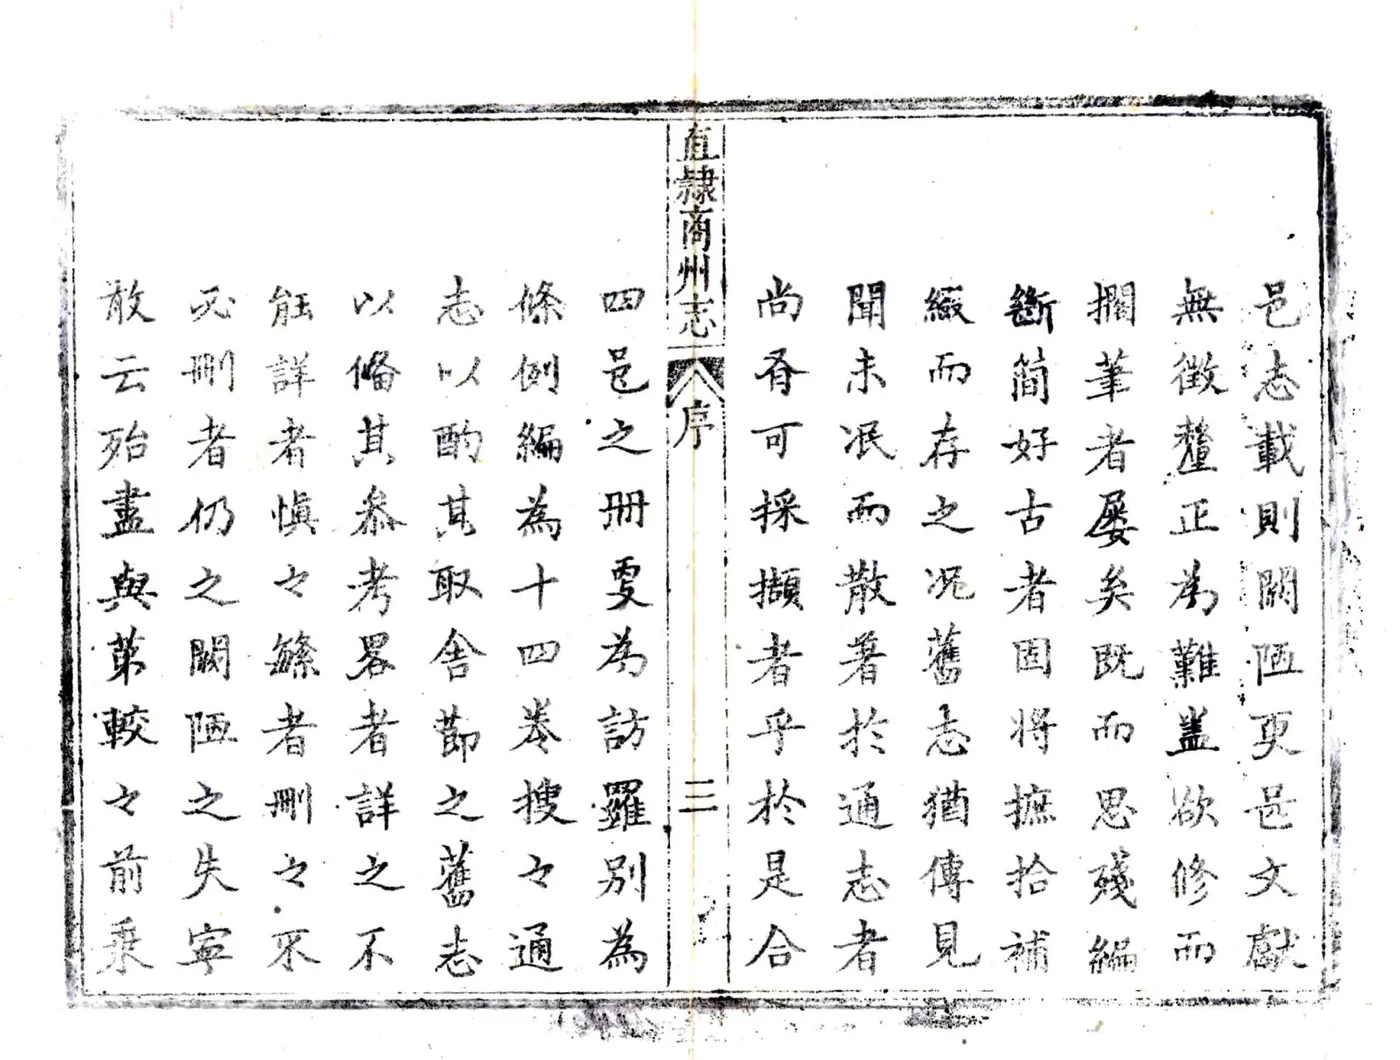 邑志載則闕陋更甚文獻
無徵釐正為難盖欲修而
擱筆者屡矣既而思殘編
斷簡好古者固将摭拾補
綴而存之况舊志猶傳見
聞未泯而散著於通志者
尚有可採擷者乎於是合
直隷商州志
序
三
四邑之册更為訪羅别為
條例編為十四卷搜之通
志以酌其取舍節之舊志
以俻其叅考畧者詳之不
能詳者慎之緐者刪之不
必刪者仍之闕陋之失寧
敢云殆盡與第較之前乗